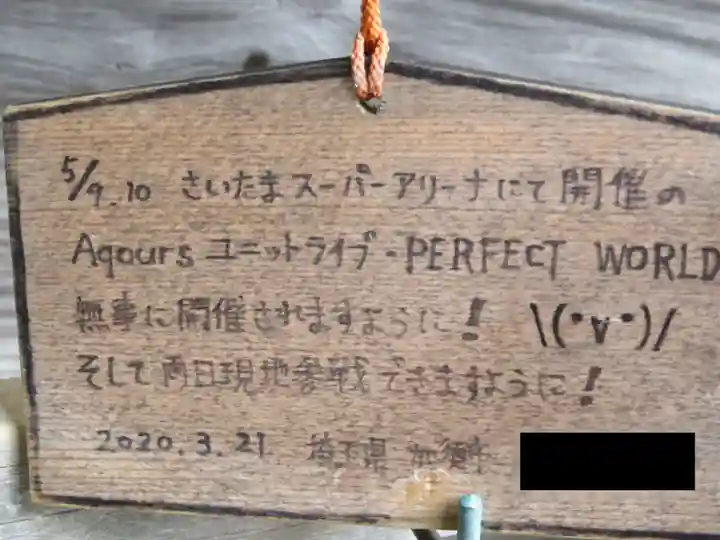 5/9.10 さいたまスーパーアリーナにて開催の
Aqours ユニットライブ・PERFECT WORLD
無事に開催されますように! \(・v・)/
そして両日現地参戦できますように!
2020.3.21 埼玉県 加須市